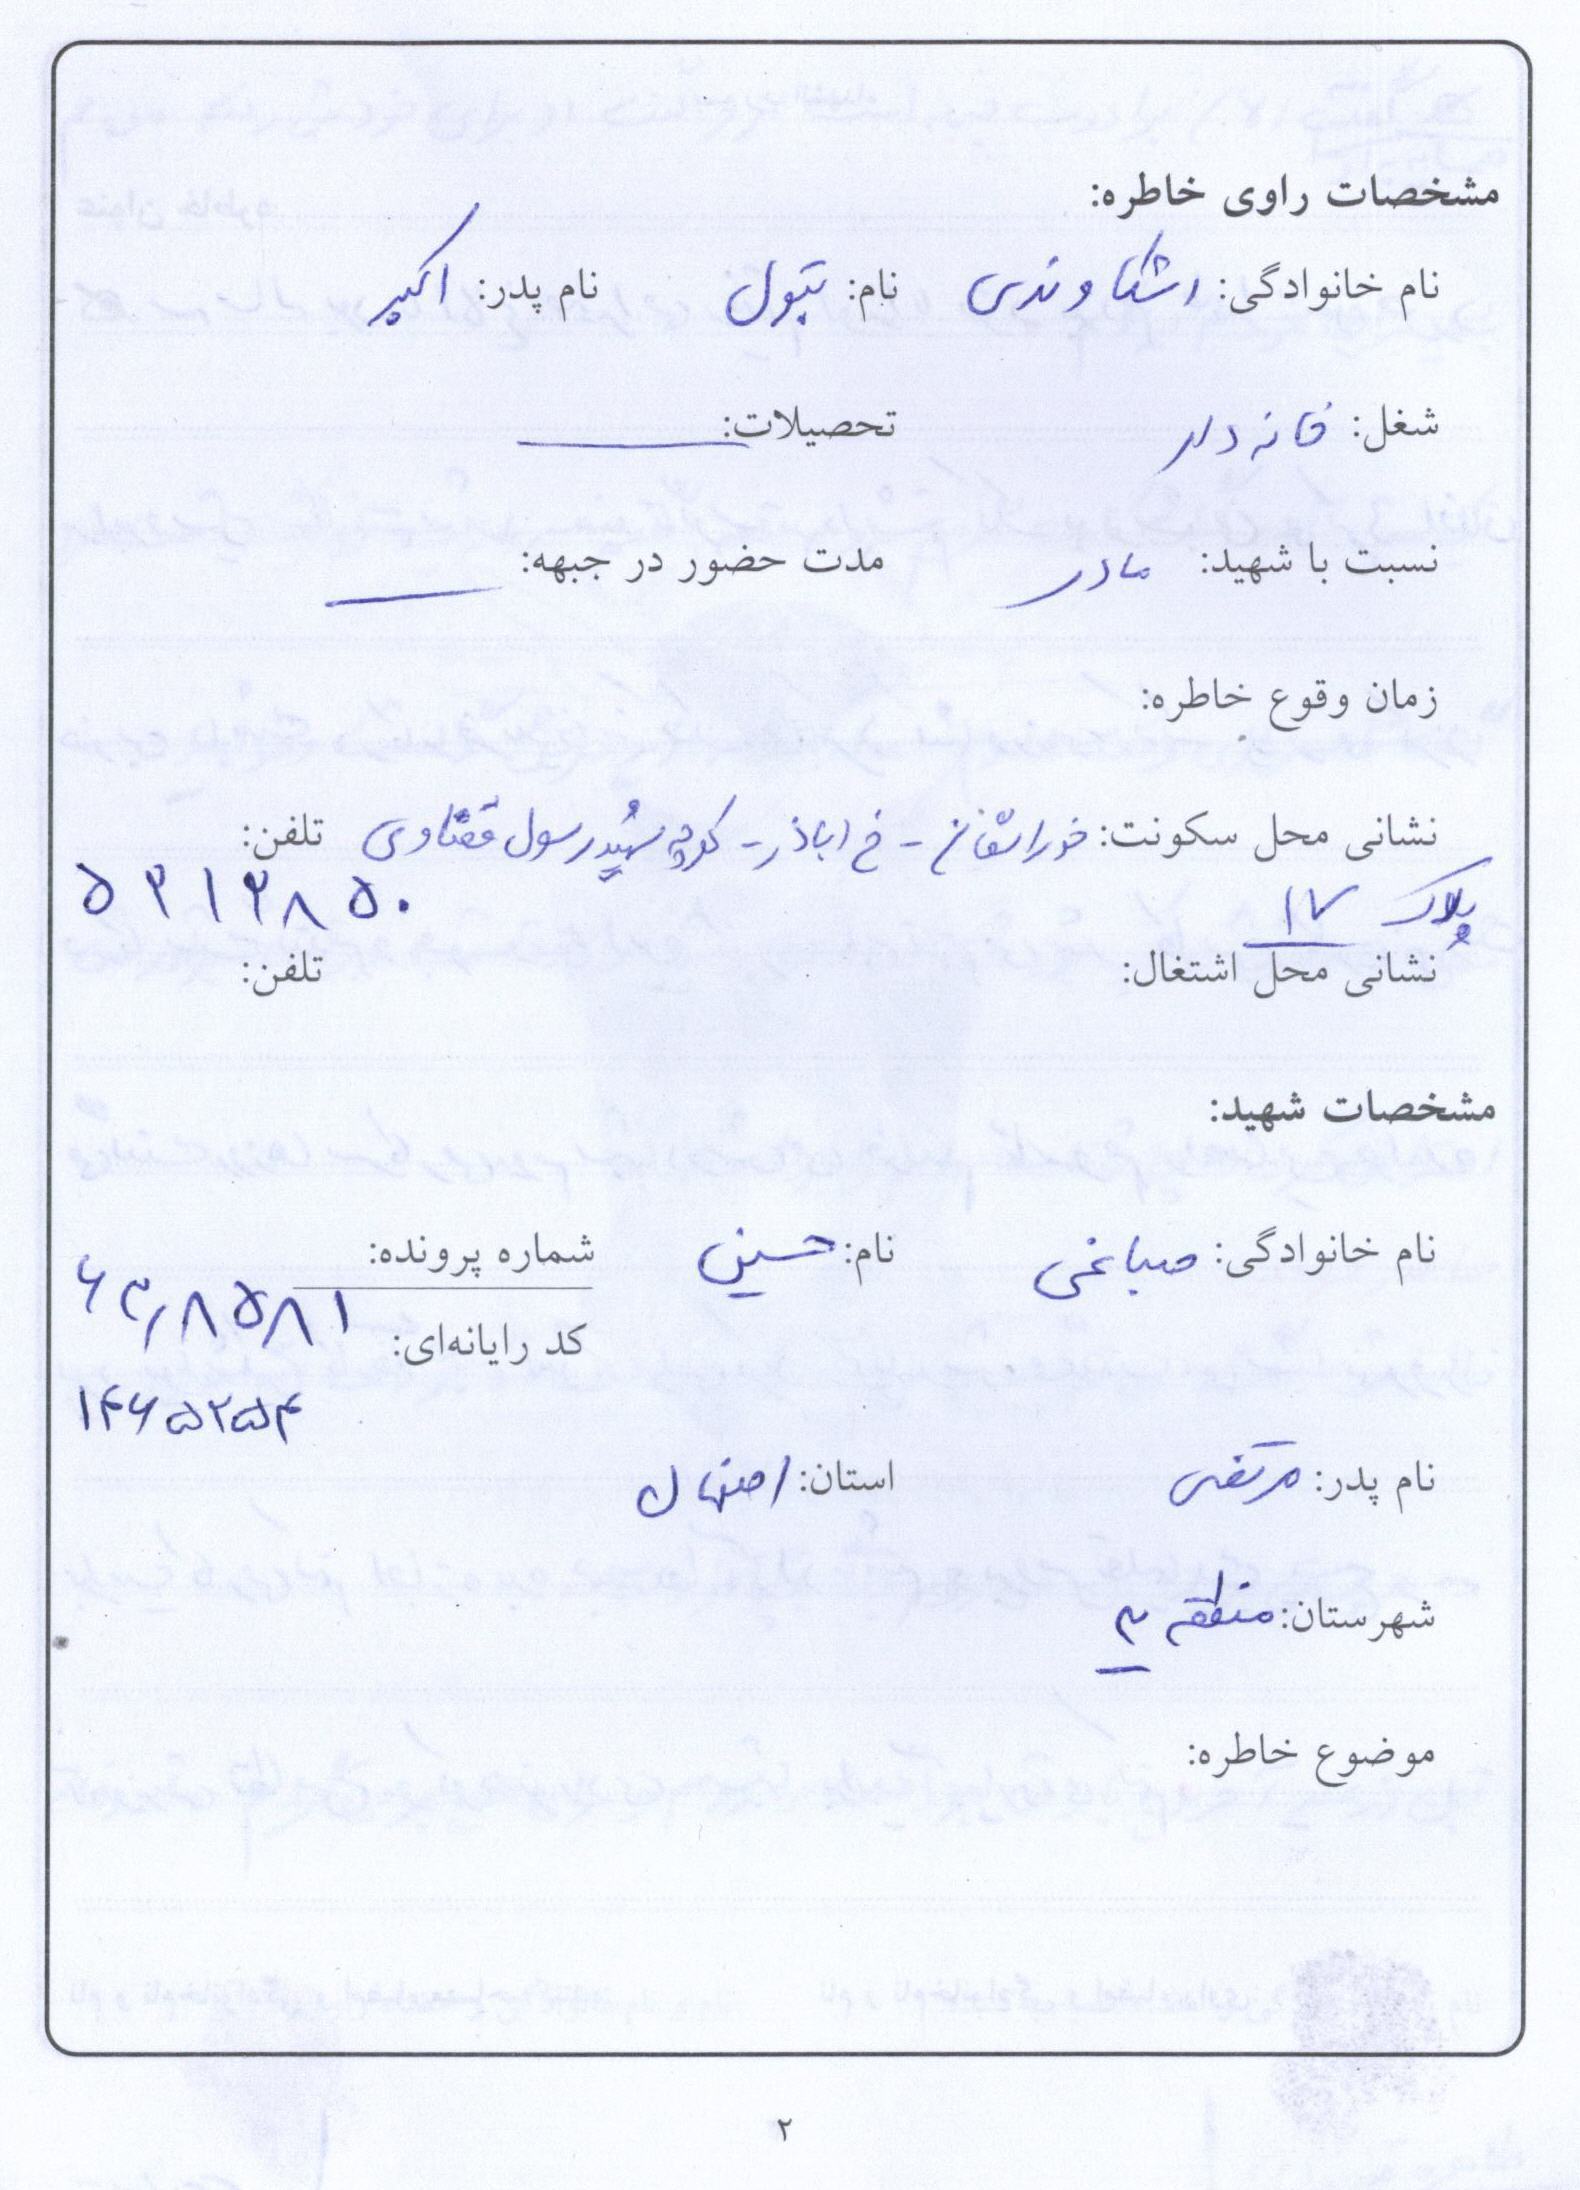 مشخصات راوی خاطره:
نام خانوادگی: اشکاوندی نام: بتول نام پدر: اکبر
شغل: خانه دار تحصیلات: ـــــ
نسبت با شهید: مادر مدت حضور در جبهه: ـــــ
زمان وقوع خاطره:
نشانی محل سکونت: خوراسگان - خ اباذر - کوچه شهید رسول قضاوی تلفن:
پلاک ۱۷ ۵۲۱۲۸۵۰
نشانی محل اشتغال: تلفن:
مشخصات شهید:
نام خانوادگی: صباغی نام: حسین شماره پرونده:
۶۳/۸۵۸۱
کد رایانه‌ای:
۱۴۶۵۲۵۴
نام پدر: مرتضی استان: اصفهان
شهرستان: منطقه ۳
موضوع خاطره:
۲